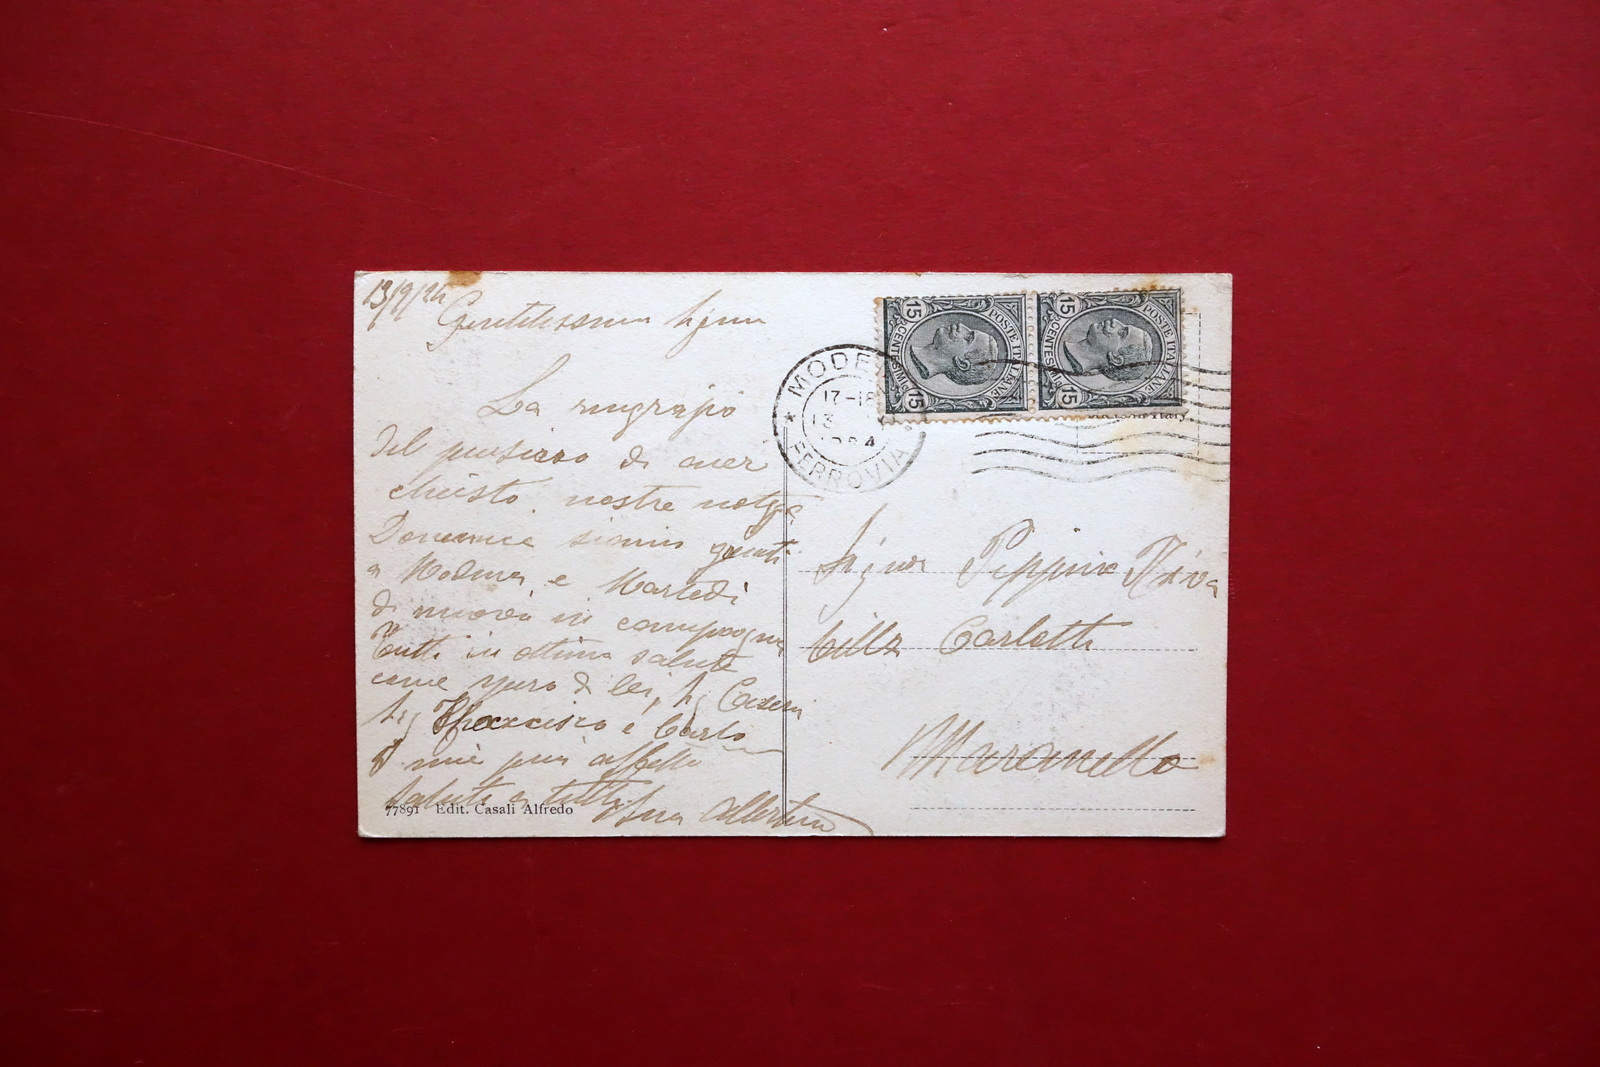 13/9/24
Gentilissima Signa
La ringrazio
del pensiero di aver
chiesto nostre notize
Domenica siamo
a Modena e Martedi
di nuovo in campagna
Tutti in ottima salute
come spero di lei, Sig
Sig Francesco e Carlo
mie più affett
saluti a tutti Sua Albertina
77891 Edit. Casali Alfredo
MODE
17-18
13
FERROVIA
POSTE ITALIANE
15 CENTESIMI 15
POSTE ITALIANE
15 CENTESIMI 15
Italy
Signa Peppina Riva
Villa Carlotti
Maranello